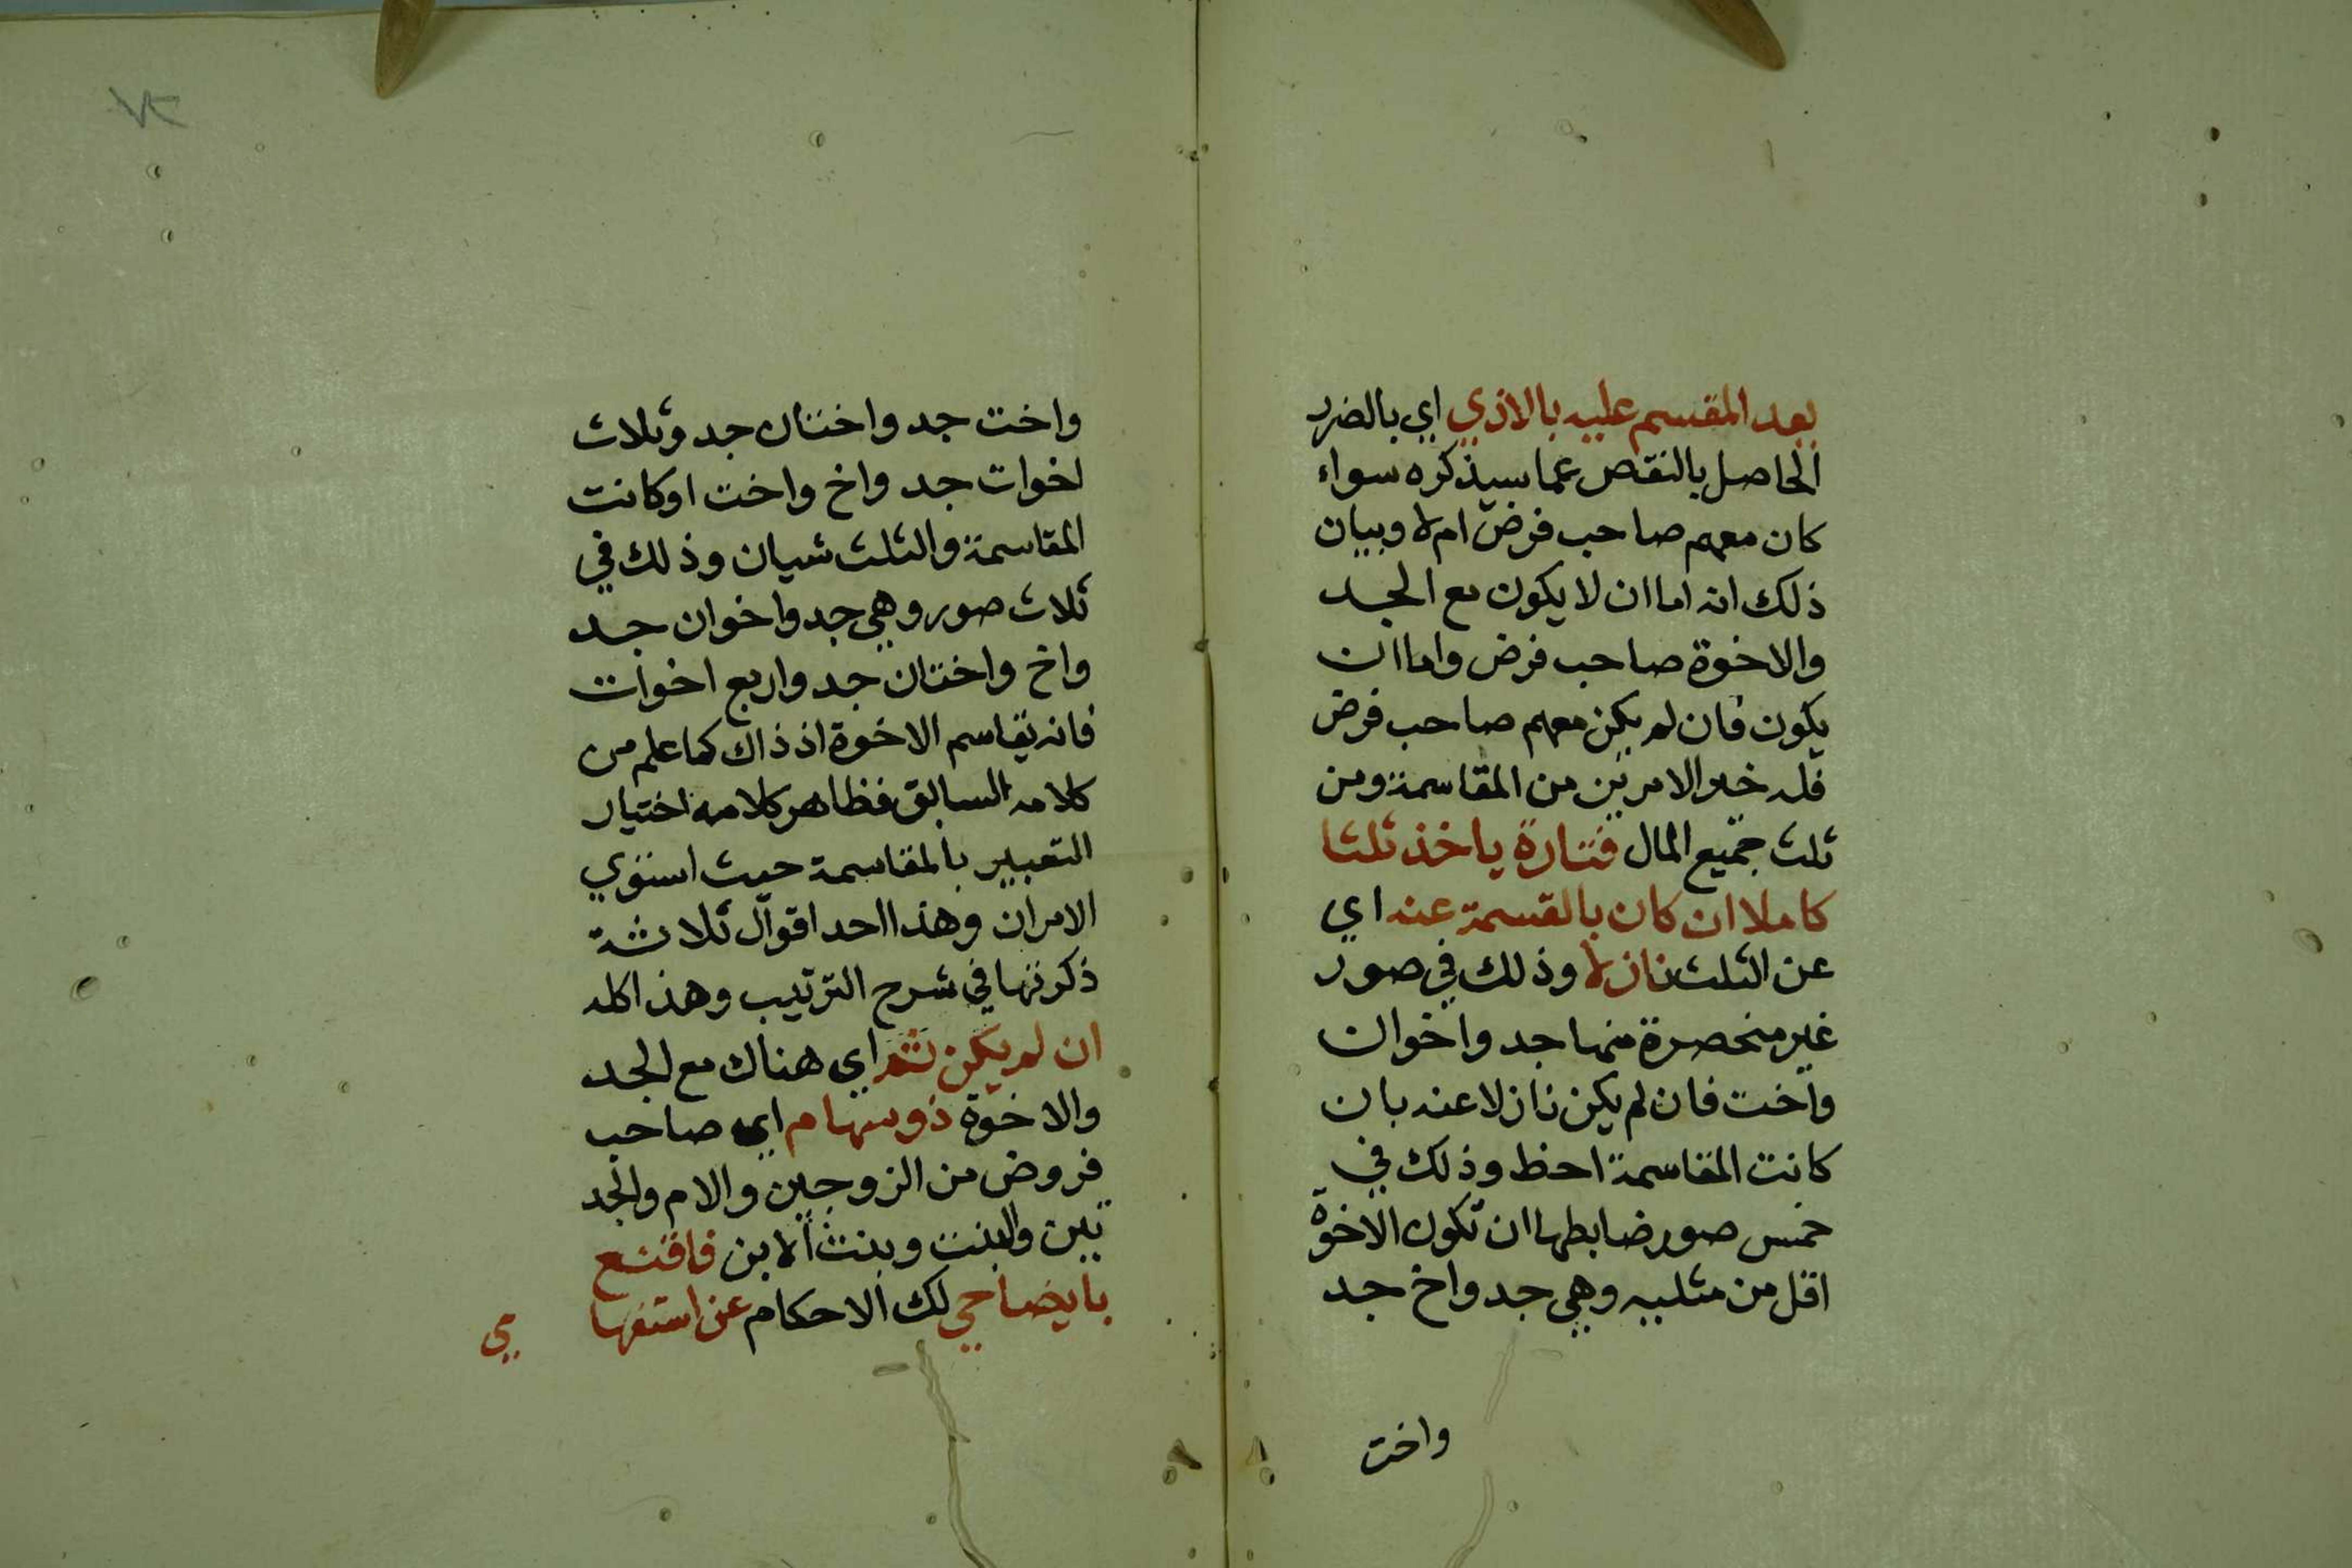 بعد المقسم عليه بالاذي اي بالضرر
الحاصل بالنقص عما سيذكره سواء
كان معهم صاحب فرض ام لا وبيان
ذلك انه اما ان لا يكون مع الجد
والاخوة صاحب فرض واما ان
يكون فان لم يكن معهم صاحب فرض
فله خير الامرين من المقاسمة ومن
ثلث جميع المال فتارة ياخذ ثلثا
كاملا ان كان بالقسمة عنه اي
عن الثلث نازلا وذلك في صور
غير منحصرة منها جد واخوان
واخت فان لم يكن نازلا عنه بان
كانت المقاسمة احظ وذلك في
خمس صور ضابطها ان تكون الاخوة
اقل من مثليه وهي جد واخ جد
واخت
واخت جد واختان جد وثلاث
اخوات جد واخ واخت او كانت
المقاسمة والثلث شيان وذلك في
ثلاث صور وهي جد واخوان جد
واخ واختان جد واربع اخوات
فانه يقاسم الاخوة اذ ذاك كما علم من
كلامه السابق فظاهر كلامه اختيار
التعبير بالمقاسمة حيث استوي
الامران وهذا احد اقوال ثلاثة
ذكرتها في شرح الترتيب وهذا كله
ان لم يكن ثم اي هناك مع الجد
والاخوة ذو سهام اي صاحب
فروض من الزوجين والام والجد
تين والبنت وبنت الابن فاقنع
بايضاحي لك الاحكام عن استفها
مي
٧٢